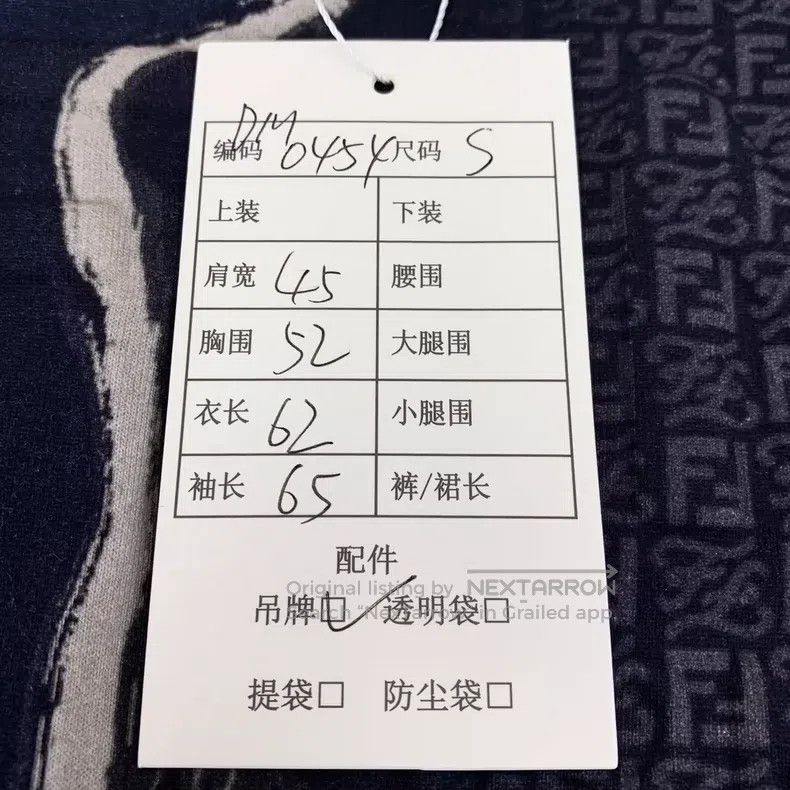 DIM
编码 0454 尺码 S
上装 下装
肩宽 45 腰围
胸围 52 大腿围
衣长 62 小腿围
袖长 65 裤/裙长
配件
Original listing by NEXTARROW
吊牌☑ 透明袋□
Search "Nextarrow" in Grailed app
提袋□ 防尘袋□